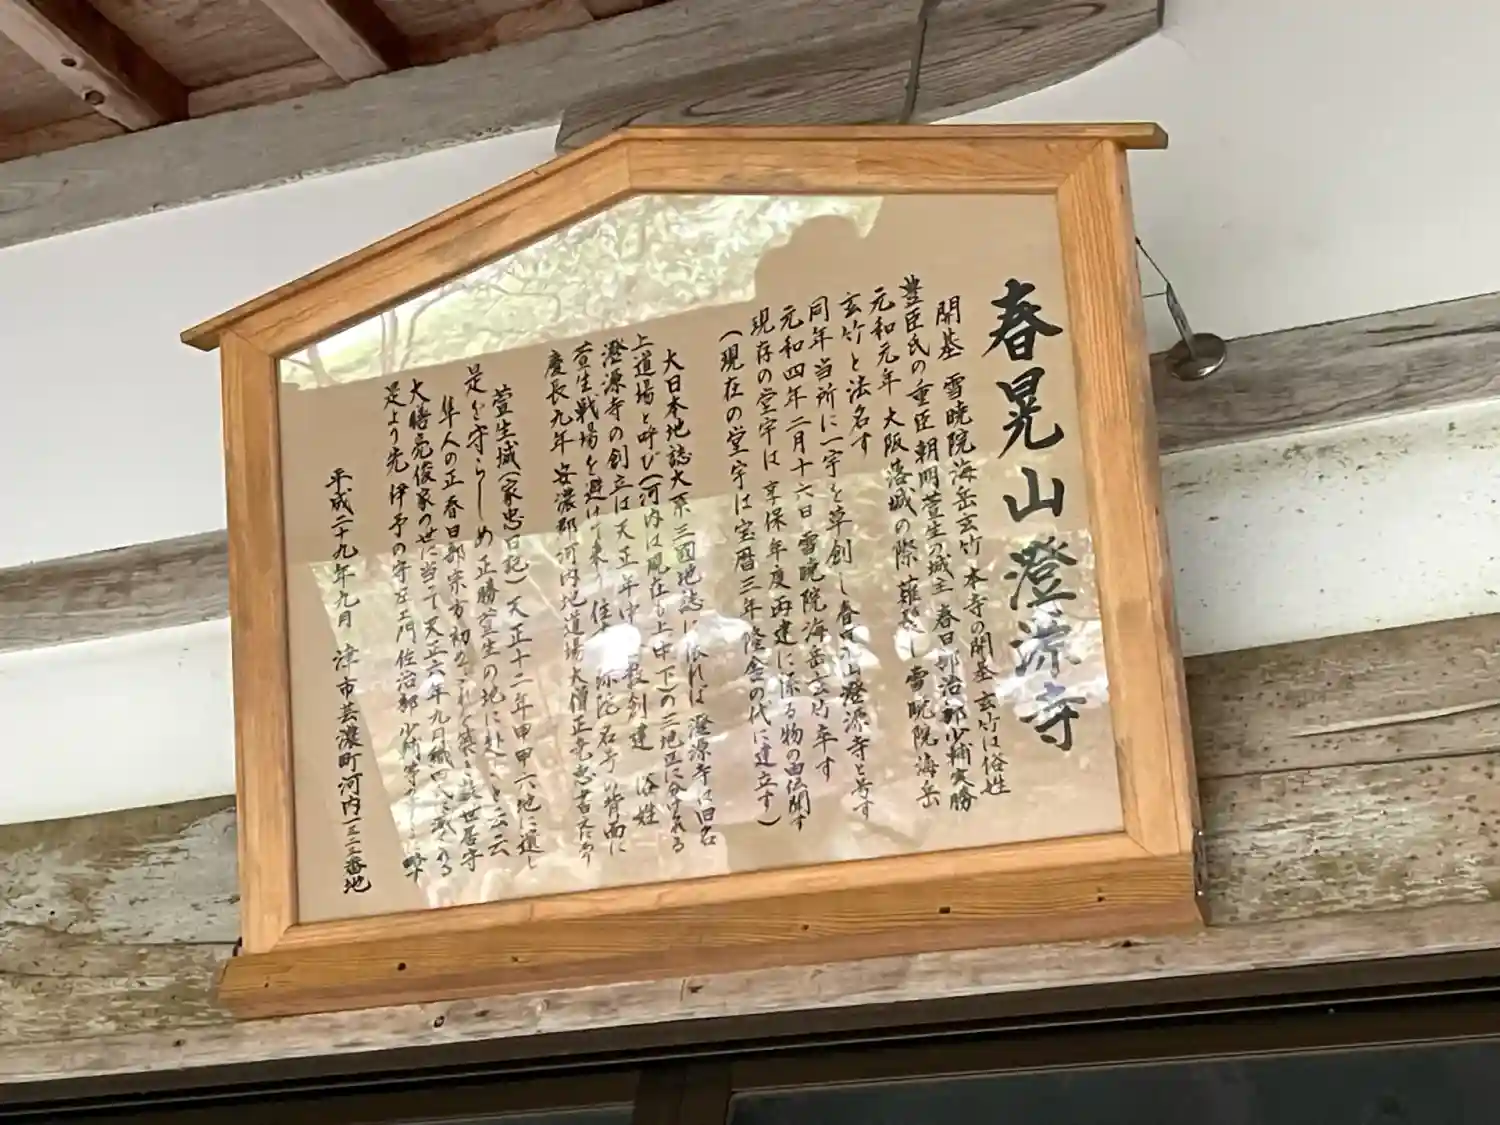 春晃山澄源寺
開基 雪暁院海岳玄竹 本寺の開基 玄竹は俗姓
豊臣氏の重臣朝明萱生の城主 春日部治部少輔実勝
元和元年 大阪落城の際 薙髪し雪暁院海岳
玄竹と法名す
同年当所に一宇を草創し春晃山澄源寺と号す
元和四年二月十六日 雪暁院海岳玄竹卒す
現存の堂宇は享保年度再建に係る物の由伝聞す
(現在の堂宇は宝暦三年隆舎の代に建立す)
大日本地誌大系三国地誌に依れば 澄源寺は旧名
上道場と呼び(河内は現在も上中下)の三地区に分けれる
澄源寺の創立は天正年中 創建 俗姓
萱生戦場を避けて来り住す 弥陀石寺の背面に
慶長九年 安濃郡河内地道場大僧正 書えあり
萱生城(家忠日記)天正十二年甲申 六地に還し
是を守らしめ 正勝萱生の地に と云云
隼人の正春日部宗方初めこれを築き 世居守
大膳亮俊家の世に当て天正六年九月織田氏に
是より先 伊予の守 左エ門 佐治部 少輔等
平成二十九年九月 津市芸濃町河内一三三番地